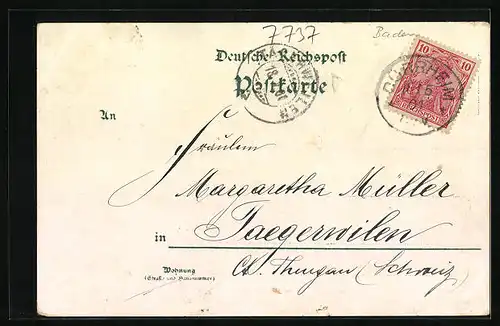 7737
Baden
Deutsche Reichspost
Postkarte
10 10
REICHSPOST
TAEGERWILEN
An
Fräulein
Margaretha Müller
in Taegerwilen
Ct. Thurgau (Schweiz)
Wohnung
(Straße und Hausnummer)